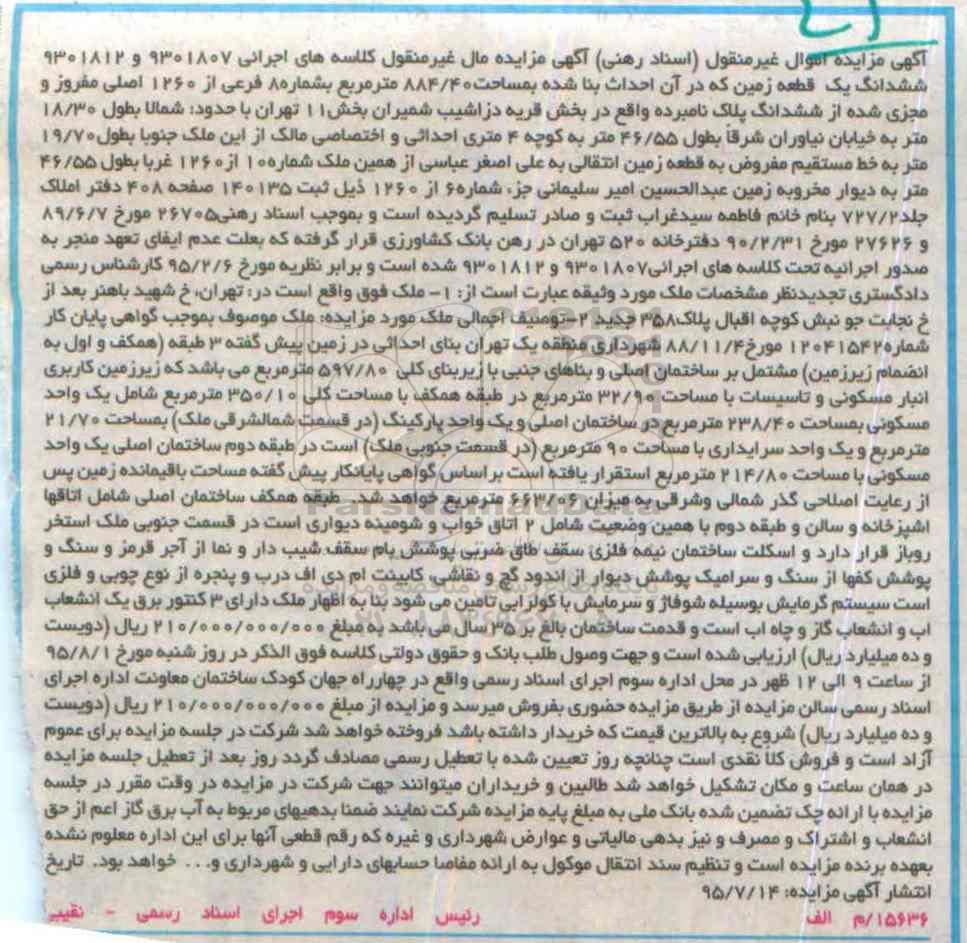 آگهی مزایده اموال غیرمنقول (اسناد رهنی) آگهی مزایده مال غیرمنقول کلاسه های اجرائی ۹۳۰۱۸۰۷ و ۹۳۰۱۸۱۲
ششدانگ یک قطعه زمین که در آن احداث بنا شده بمساحت۸۸۴/۴۰ مترمربع بشماره۸ فرعی از ۱۲۶۰ اصلی مفروز و
مجزی شده از ششدانگ پلاک نامبرده واقع در بخش قریه دزاشیب شمیران بخش۱۱ تهران با حدود: شمالا بطول ۱۸/۳۰
متر به خیابان نیاوران شرقاً بطول ۴۶/۵۵ متر به کوچه ۴ متری احداثی و اختصاصی مالک از این ملک جنوبا بطول۱۹/۷۰
متر به خط مستقیم مفروض به قطعه زمین انتقالی به علی اصغر عباسی از همین ملک شماره۱۰ از۱۲۶۰ غربا بطول ۴۶/۵۵
متر به دیوار مخروبه زمین عبدالحسین امیر سلیمانی جزء شماره۶ از ۱۲۶۰ ذیل ثبت ۱۴۰۱۳۵ صفحه ۴۰۸ دفتر املاک
جلد۷۲۷/۲ بنام خانم فاطمه سیدغراب ثبت و صادر تسلیم گردیده است و بموجب اسناد رهنی۲۶۷۰۵ مورخ ۸۹/۶/۷
و ۲۷۶۲۶ مورخ ۹۰/۲/۳۱ دفترخانه ۵۲۰ تهران در رهن بانک کشاورزی قرار گرفته که بعلت عدم ایفای تعهد منجر به
صدور اجرائیه تحت کلاسه های اجرائی۹۳۰۱۸۰۷ و ۹۳۰۱۸۱۲ شده است و برابر نظریه مورخ ۹۵/۲/۶ کارشناس رسمی
دادگستری تجدیدنظر مشخصات ملک مورد وثیقه عبارت است از: ۱- ملک فوق واقع است در: تهران، خ شهید باهنر بعد از
خ نجابت جو نبش کوچه اقبال پلاک۳۵۸ جدید ۲-توصیف اجمالی ملک مورد مزایده: ملک موصوف بموجب گواهی پایان کار
شماره۱۲۰۴۱۵۴۲ مورخ۸۸/۱۱/۴ شهرداری منطقه یک تهران بنای احداثی در زمین پیش گفته ۳ طبقه (همکف و اول به
انضمام زیرزمین) مشتمل بر ساختمان اصلی و بناهای جنبی با زیربنای کلی ۵۹۷/۸۰ مترمربع می باشد که زیرزمین کاربری
انبار مسکونی و تاسیسات با مساحت ۳۲/۹۰ مترمربع در طبقه همکف با مساحت کلی ۳۵۰/۱۰ مترمربع شامل یک واحد
مسکونی بمساحت ۲۳۸/۴۰ مترمربع در ساختمان اصلی و یک واحد پارکینگ (در قسمت شمالشرقی ملک) بمساحت ۲۱/۷۰
مترمربع و یک واحد سرایداری با مساحت ۹۰ مترمربع (در قسمت جنوبی ملک) است در طبقه دوم ساختمان اصلی یک واحد
مسکونی با مساحت ۲۱۴/۸۰ مترمربع استقرار یافته است براساس گواهی پایانکار پیش گفته مساحت باقیمانده زمین پس
از رعایت اصلاحی گذر شمالی وشرقی به میزان ۶۶۳/۰۶ مترمربع خواهد شد. طبقه همکف ساختمان اصلی شامل اتاقها
اشپزخانه و سالن و طبقه دوم با همین وضعیت شامل ۲ اتاق خواب و شومینه دیواری است در قسمت جنوبی ملک استخر
روباز قرار دارد و اسکلت ساختمان نیمه فلزی سقف طاق ضربی پوشش بام سقف شیب دار و نما از آجر قرمز و سنگ و
پوشش کفها از سنگ و سرامیک پوشش دیوار از اندود گچ و نقاشی، کابینت ام دی اف درب و پنجره از نوع چوبی و فلزی
است سیستم گرمایش بوسیله شوفاژ و سرمایش با کولرابی تامین می شود بنا به اظهار ملک دارای ۳ کنتور برق یک انشعاب
اب و انشعاب گاز و چاه اب است و قدمت ساختمان بالغ بر ۳۵ سال می باشد به مبلغ ۲۱۰/۰۰۰/۰۰۰/۰۰۰ ریال (دویست
و ده میلیارد ریال) ارزیابی شده است و جهت وصول طلب بانک و حقوق دولتی کلاسه فوق الذکر در روز شنبه مورخ ۹۵/۸/۱
از ساعت ۹ الی ۱۲ ظهر در محل اداره سوم اجرای اسناد رسمی واقع در چهارراه جهان کودک ساختمان معاونت اداره اجرای
اسناد رسمی سالن مزایده از طریق مزایده حضوری بفروش میرسد و مزایده از مبلغ ۲۱۰/۰۰۰/۰۰۰/۰۰۰ ریال (دویست
و ده میلیارد ریال) شروع به بالاترین قیمت که خریدار داشته باشد فروخته خواهد شد شرکت در جلسه مزایده برای عموم
آزاد است و فروش کلاً نقدی است چنانچه روز تعیین شده با تعطیل رسمی مصادف گردد روز بعد از تعطیل جلسه مزایده
در همان ساعت و مکان تشکیل خواهد شد طالبین و خریداران میتوانند جهت شرکت در مزایده در وقت مقرر در جلسه
مزایده با ارائه چک تضمین شده بانک ملی به مبلغ پایه مزایده شرکت نمایند ضمنا بدهیهای مربوط به آب برق گاز اعم از حق
انشعاب و اشتراک و مصرف و نیز بدهی مالیاتی و عوارض شهرداری و غیره که رقم قطعی آنها برای این اداره معلوم نشده
بعهده برنده مزایده است و تنظیم سند انتقال موکول به ارائه مفاصا حسابهای دارایی و شهرداری و... خواهد بود. تاریخ
انتشار آگهی مزایده: ۹۵/۷/۱۴
۱۵۶۳۶/م الف رئیس اداره سوم اجرای اسناد رسمی - نقیبی
ParsNamadData